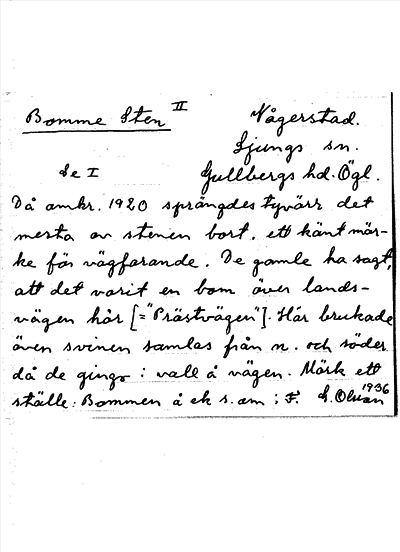 Bomme Sten II
Vågerstad.
Ljungs sn.
Gullbergs hd. Ögl.
Se I
Då omkr. 1920 sprängdes tyvärr det
mesta av stenen bort, ett känt mär-
ke för vägfarande. De gamle ha sagt,
att det varit en bom över lands-
vägen här [="Prästvägen"]. Här brukade
även svinen samlas från n. och söder
då de gingo i vall å vägen. Märk ett
ställe: Bommen å ek s. om; F.
1936